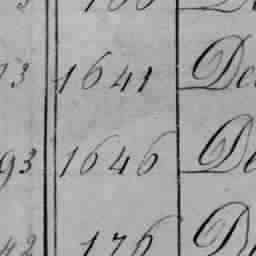 13 1641 De
93 1646 De
42 176 D